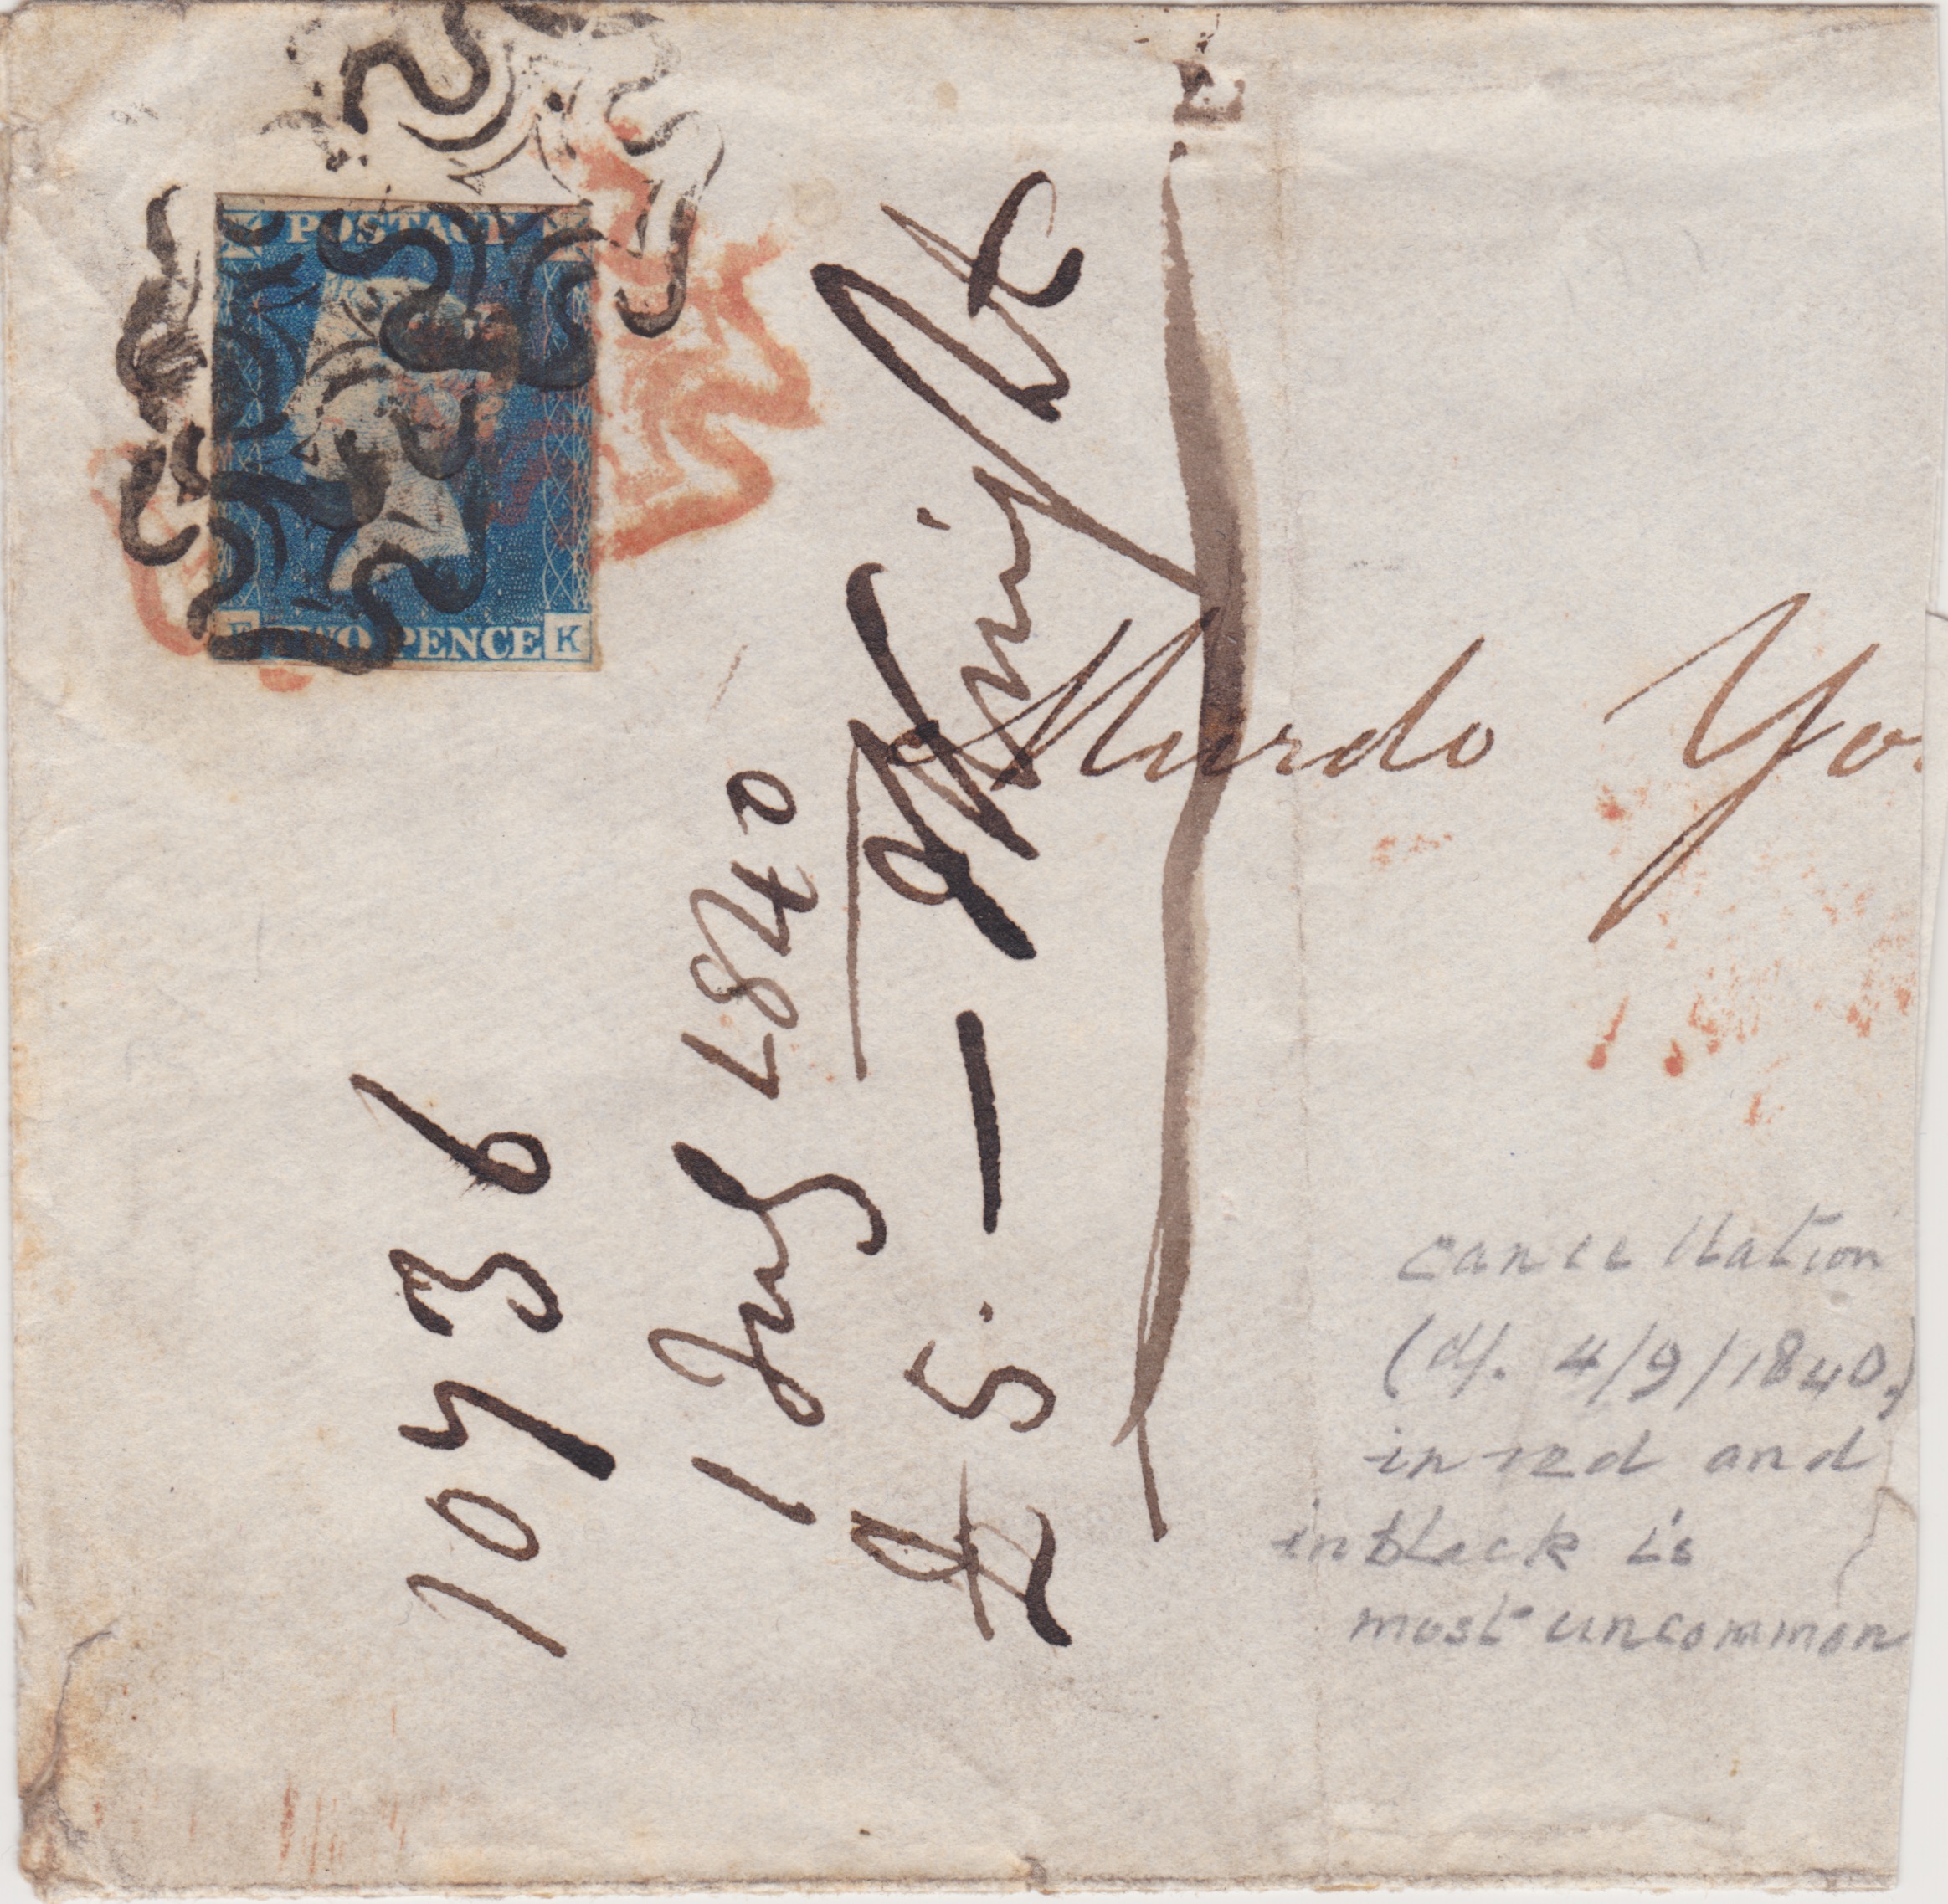 POSTAGE
TWO PENCE K
10736
1 July 1840
£5.
Murdo Yo
cancellation
(d/. 4/9/1840,)
in red and
in black is
most uncommon